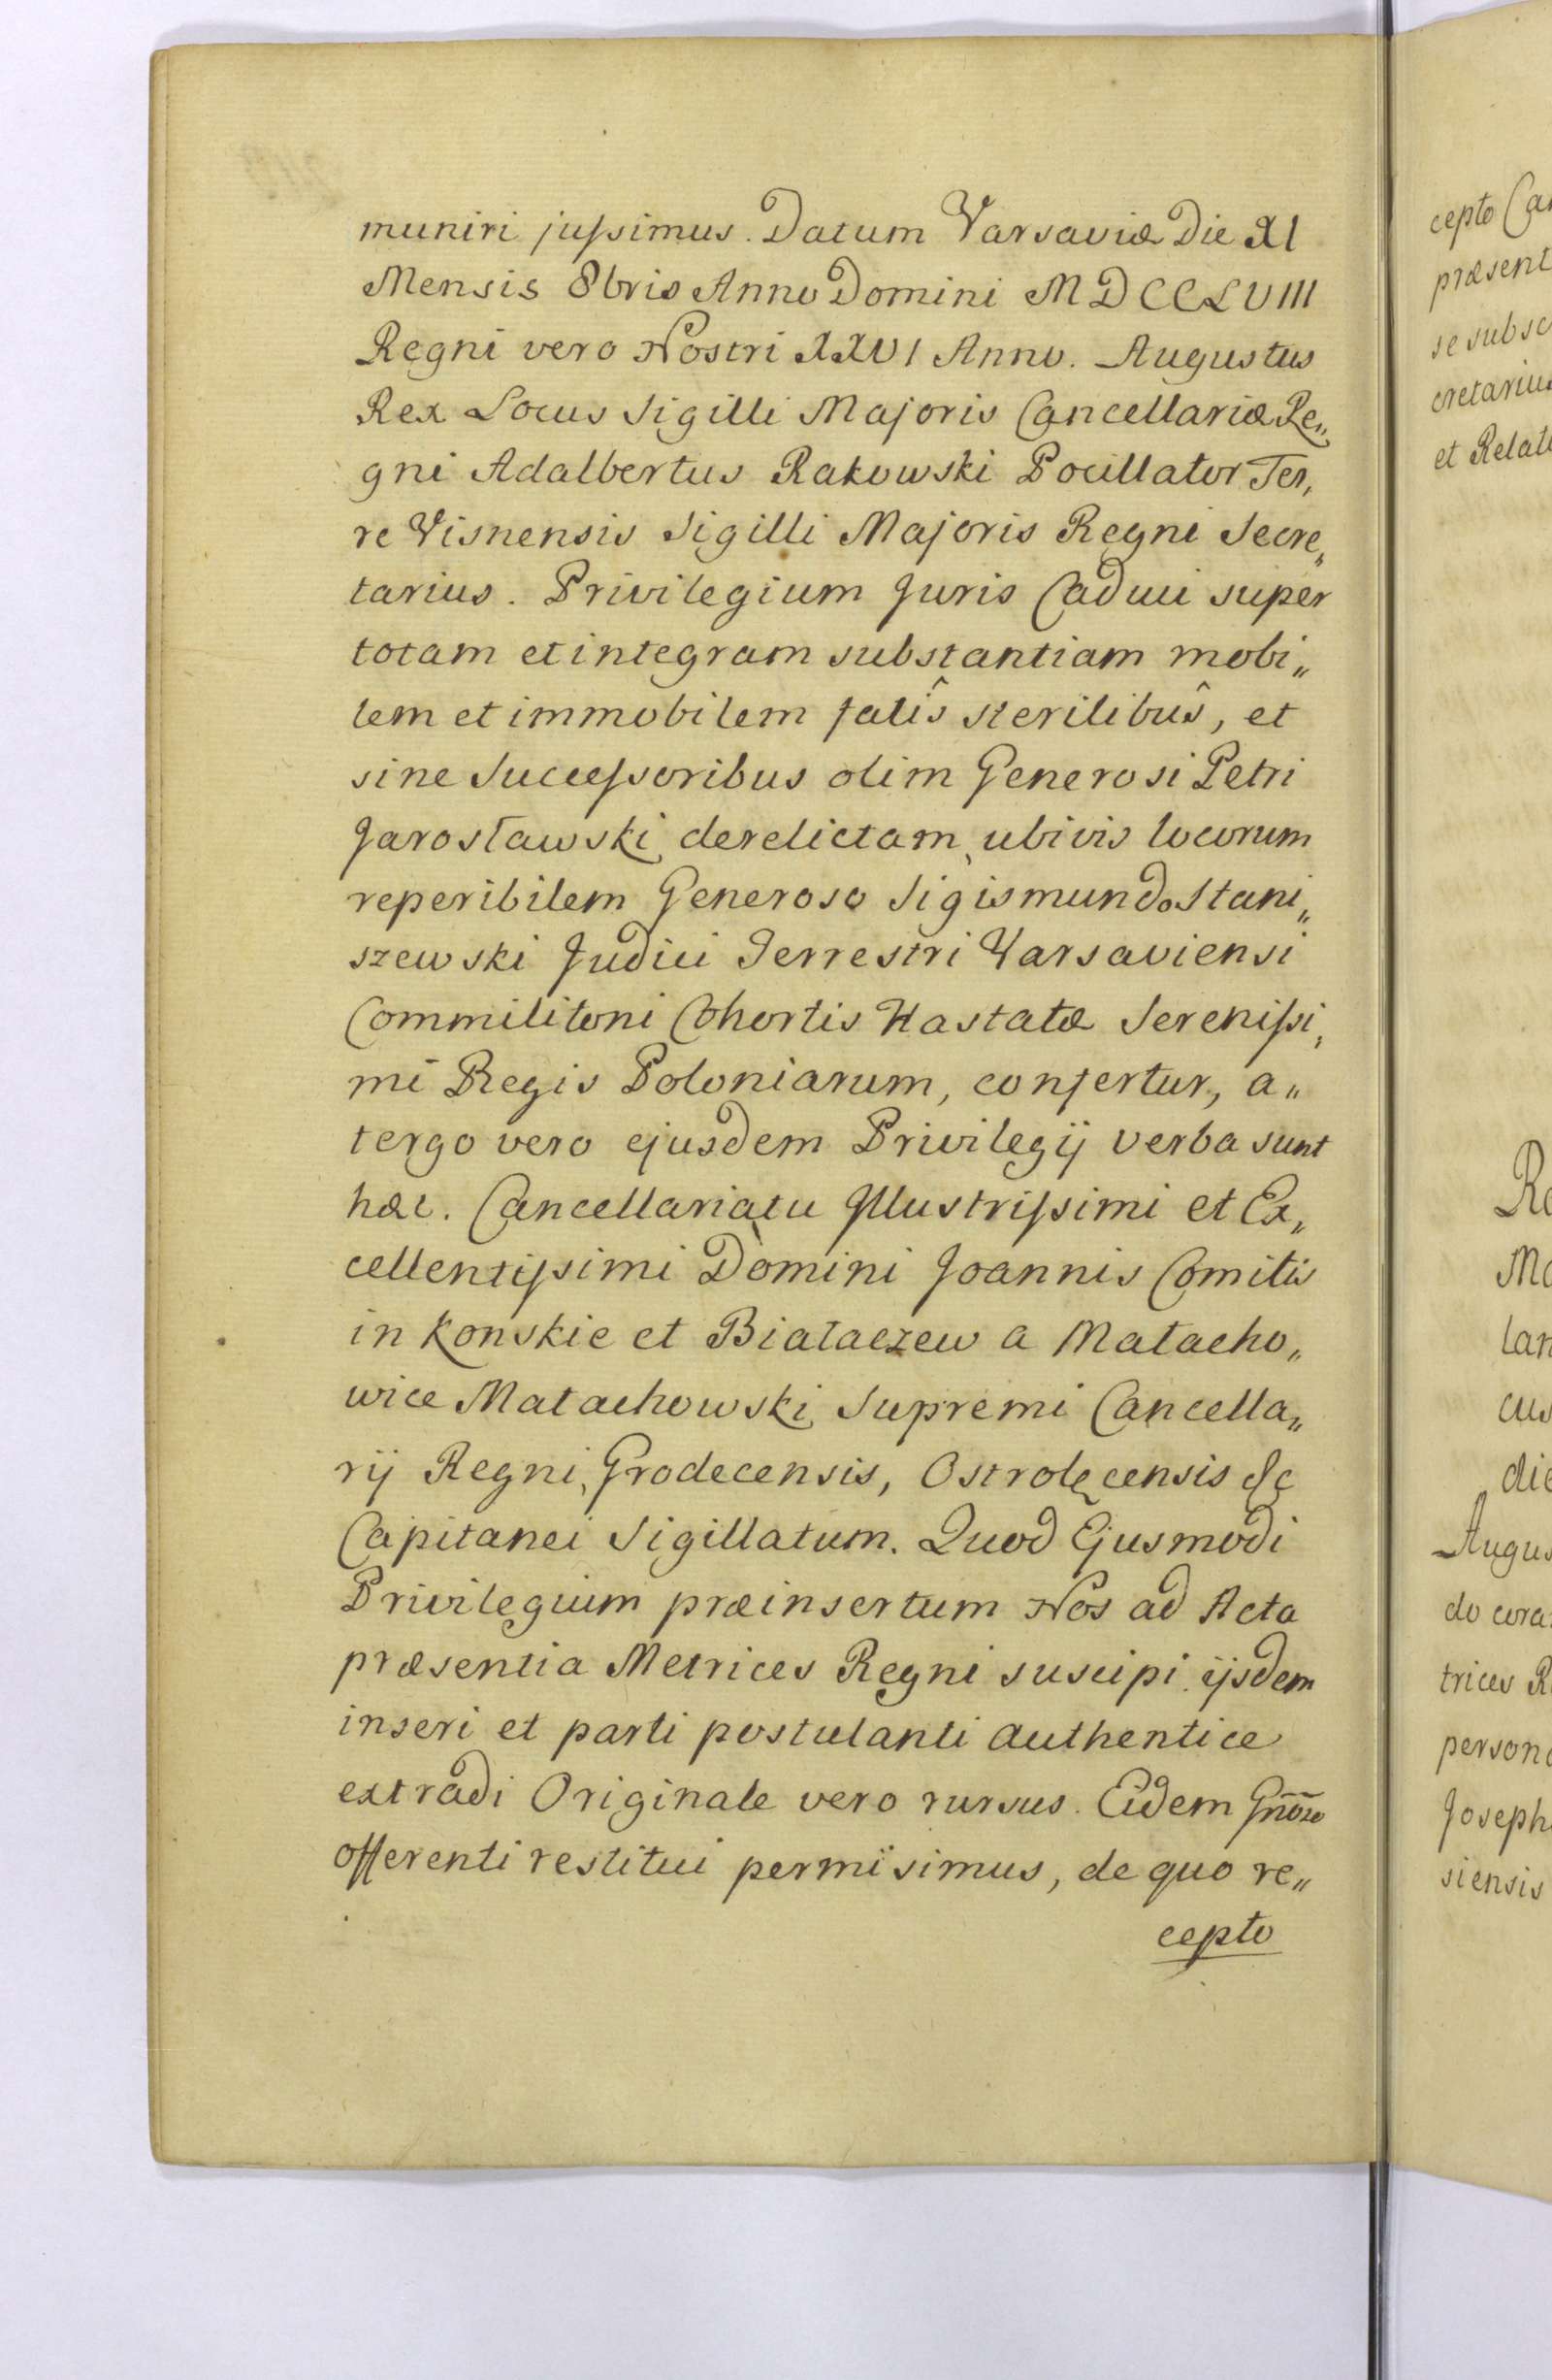 muniri jussimus. Datum Varsaviæ Die XI
Mensis 8bris Anno Domini MDCCLVIII
Regni vero Nostri XXVI Anno. Augustus
Rex Locus Sigilli Majoris Cancellariæ Re„
gni Adalbertus Rakowski Pocillator Ter,
re Visnensis Sigilli Majoris Regni Secre„
tarius. Privilegium Juris Caduci super
totam et integram substantiam mobi„
lem et immobilem fatîs sterilibûs, et
sine Successoribus olim Generosi Petri
Jarosławski derelictam, ubivis locorum
reperibilem Generoso Sigismundo Stani„
szewski Judici Terrestri Varsaviensi
Commilitoni Cohortis Hastatæ Serenissi,
mi Regis Poloniarum, confertur, a„
tergo vero ejusdem Privilegij verba sunt
hæc. Cancellariatu Illustrissimi et Ex„
cellentissimi Domini Joannis Comitis
in Konskie et Białaczew a Małacho„
wice Małachowski Supremi Cancella„
rij Regni, Grodecensis, Ostrołęcensis &c
Capitanei Sigillatum. Quod Ejusmodi
Privilegium præinsertum Nos ad Acta
præsentia Metrices Regni suscipi ijsdem
inseri et parti postulanti authentice
extradi Originale vero rursus Eidem Gnõso
offerenti restitui permisimus, de quo re„
cepto
cepto Can
præsent
se subsc
cretarius
et Relat
Re
Ma
lan
cus
die
Augus
do cora
trices R
persona
Joseph
siensis